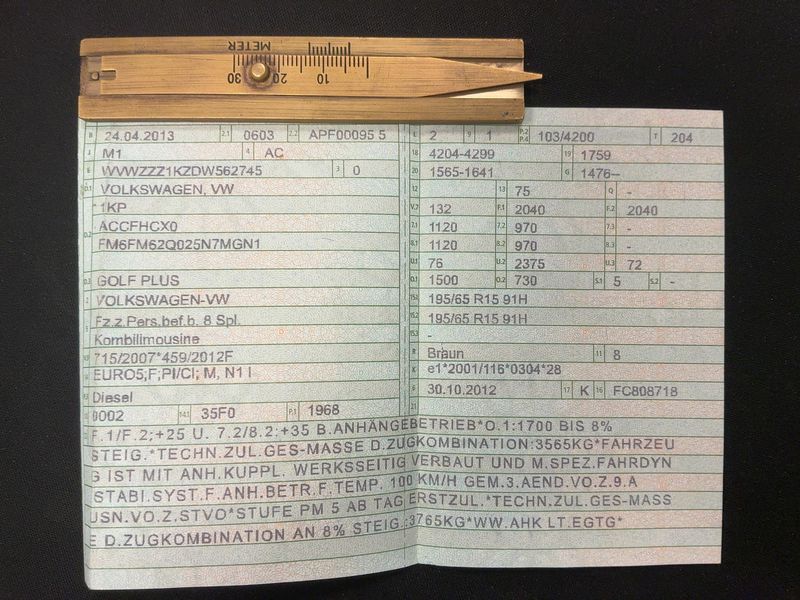 METER
30 20 10
B 24.04.2013 2.1 0603 2.2 APF00095 5
J M1 4 AC
E WVWZZZ1KZDW562745 3 0
D.1 VOLKSWAGEN, VW
1KP
D.2 ACCFHCX0
FM6FM62Q025N7MGN1
D.3 GOLF PLUS
2 VOLKSWAGEN-VW
5 Fz.z.Pers.bef.b. 8 Spl.
Kombilimousine
V.9 715/2007*459/2012F
EURO5;F;PI/CI; M, N1 I
Diesel
0002 14.1 35F0 P.1 1968
L 2 9 1 P.2 P.4 103/4200 T 204
18 4204-4299 19 1759
20 1565-1641 G 1476--
12 - 13 75 Q -
V.7 132 F.1 2040 F.2 2040
7.1 1120 7.2 970 7.3 -
8.1 1120 8.2 970 8.3 -
U.1 76 U.2 2375 U.3 72
O.1 1500 O.2 730 S.1 5 S.2 -
15.1 195/65 R15 91H
15.2 195/65 R15 91H
15.3 -
R Braun 11 8
K e1*2001/116*0304*28
6 30.10.2012 17 K 16 FC808718
21
F.1/F.2;+25 U. 7.2/8.2:+35 B.ANHÄNGEBETRIEB*O.1:1700 BIS 8%
STEIG.*TECHN.ZUL.GES-MASSE D.ZUGKOMBINATION:3565KG*FAHRZEU
G IST MIT ANH.KUPPL. WERKSSEITIG VERBAUT UND M.SPEZ.FAHRDYN
STABI.SYST.F.ANH.BETR.F.TEMP. 100 KM/H GEM.3.AEND.VO.Z.9.A
USN.VO.Z.STVO*STUFE PM 5 AB TAG ERSTZUL.*TECHN.ZUL.GES-MASS
E D.ZUGKOMBINATION AN 8% STEIG.:3765KG*WW.AHK LT.EGTG*